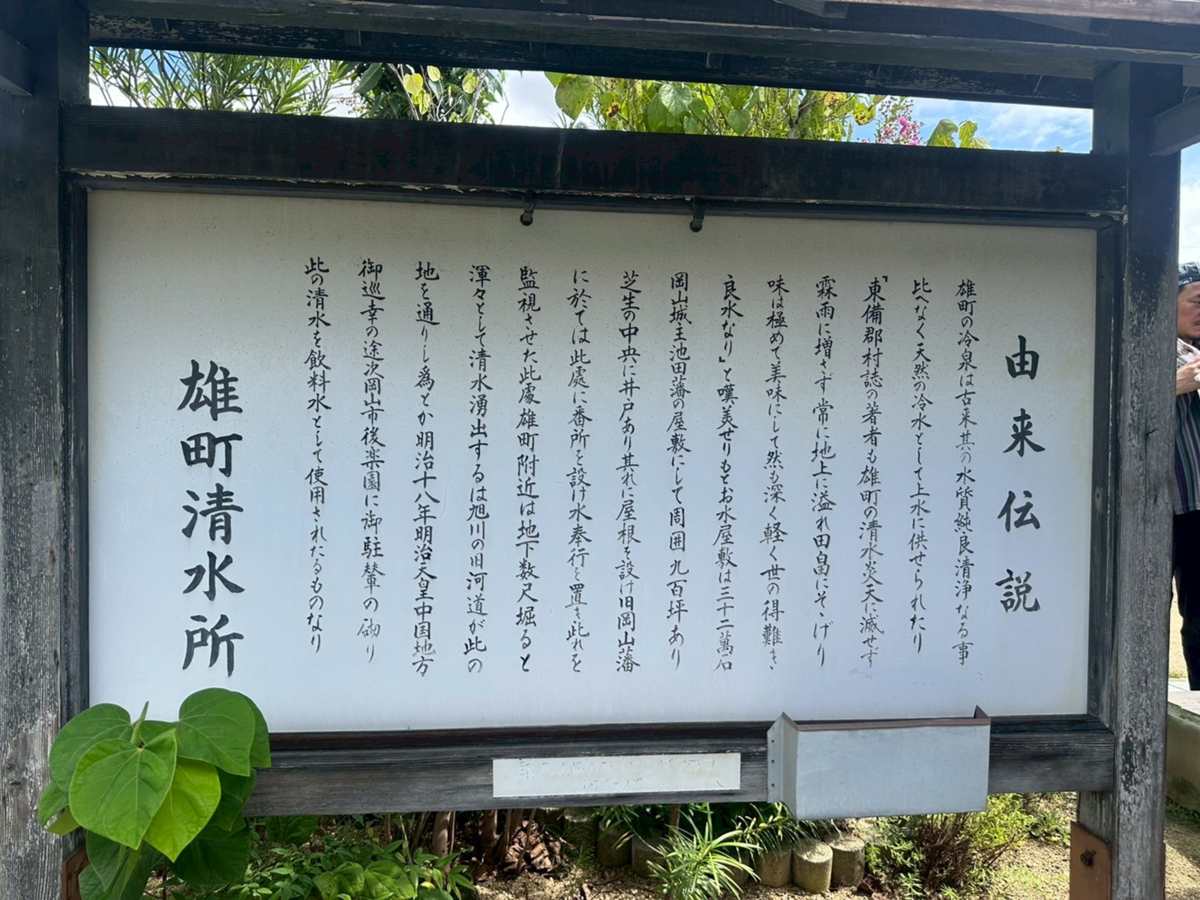 由来伝説
雄町の冷泉は古来其の水質純良清浄なる事
比へなく天然の冷水として上水に供せられたり
「東備郡村誌の著者も雄町の清水炎天に減せず
霖雨に増さず常に地上に溢れ田畠にそゝげり
味は極めて美味にして然も深く軽く世の得難き
良水なり」と嘆美せりもとお水屋敷は三十二萬石
岡山城主池田藩の屋敷にして周囲九百坪あり
芝生の中央に井戸あり其れに屋根を設け旧岡山藩
に於ては此處に番所を設け水奉行を置き此れを
監視させた此處雄町附近は地下数尺堀ると
渾々として清水湧出するは旭川の旧河道が此の
地を通りし為とか明治十八年明治天皇中国地方
御巡幸の途次岡山市後楽園に御駐輦の砌り
此の清水を飲料水として使用されたるものなり
雄町清水所